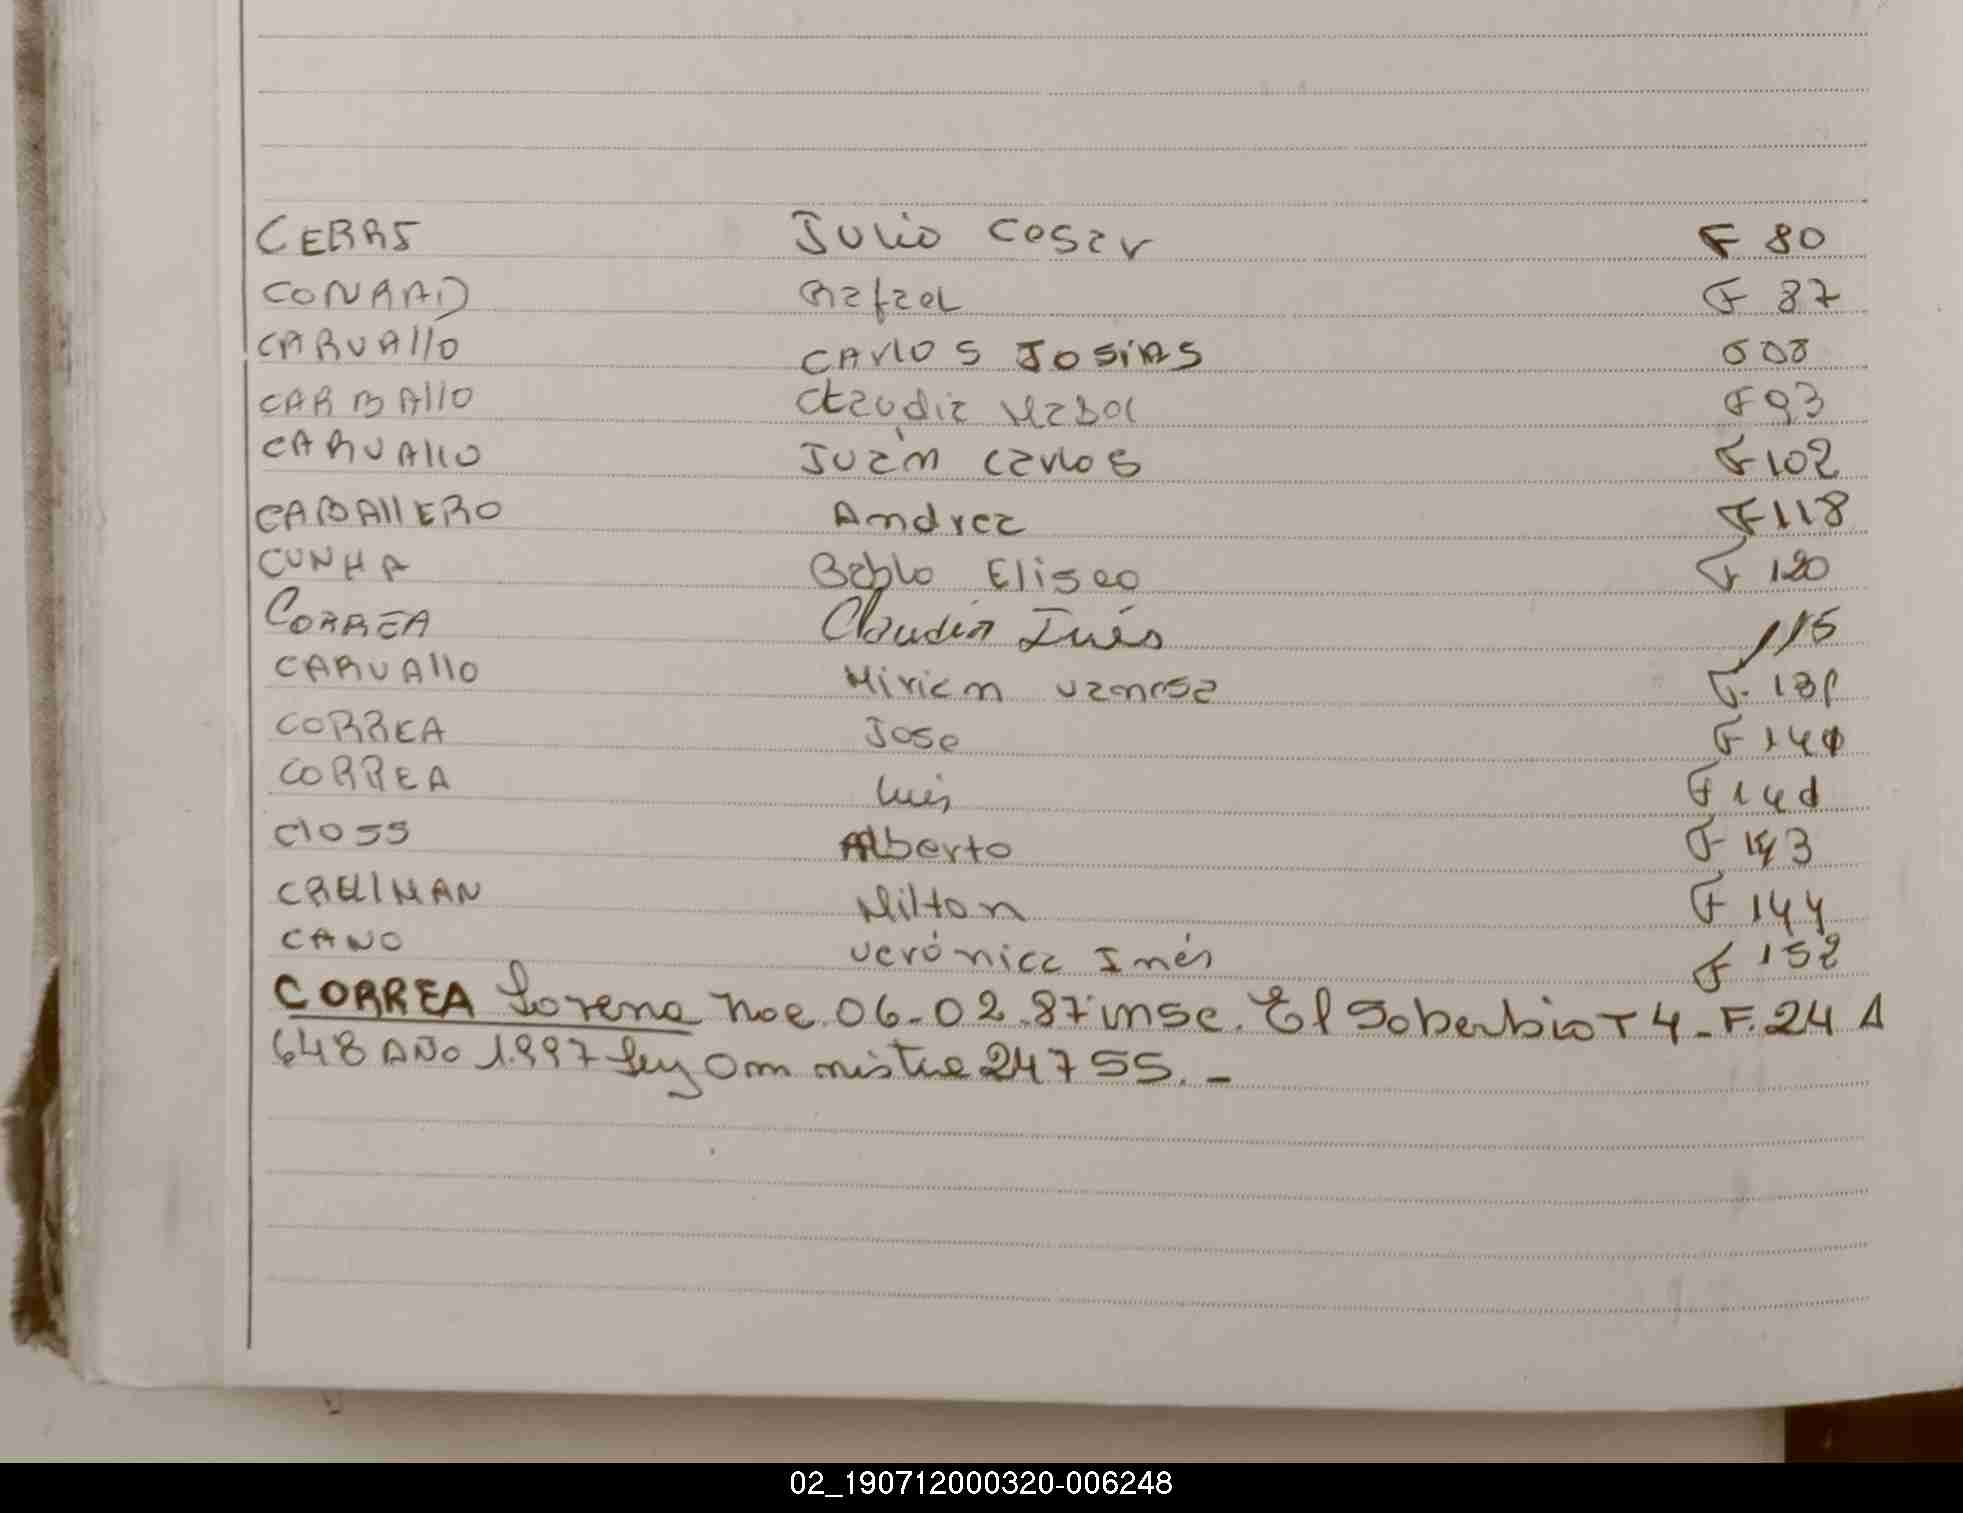 CERRS Julio Cesar F 80
CONRAD Rafael F 87
CARVAllO CArlos JOSiAS 088
CARBAllO Claudia Mabel F 93
CARVAllO Juán Carlos F 102
CABAllERO Andrea F 118
CUNHA Pablo Eliseo F 120
CORREA Claudia Inés 115
CARVAllO Miriam Vanesa F.
CORREA Jose
CORREA Luis
ClOSS Alberto F 143
Milton F 144
CANO Verónica Inés F 152
CORREA Lorena Noe. 06-02-87 insc. El Soberbio T 4 - F. 24 A
648 AÑO 1.997 Ley 24755. -
02_190712000320-006248